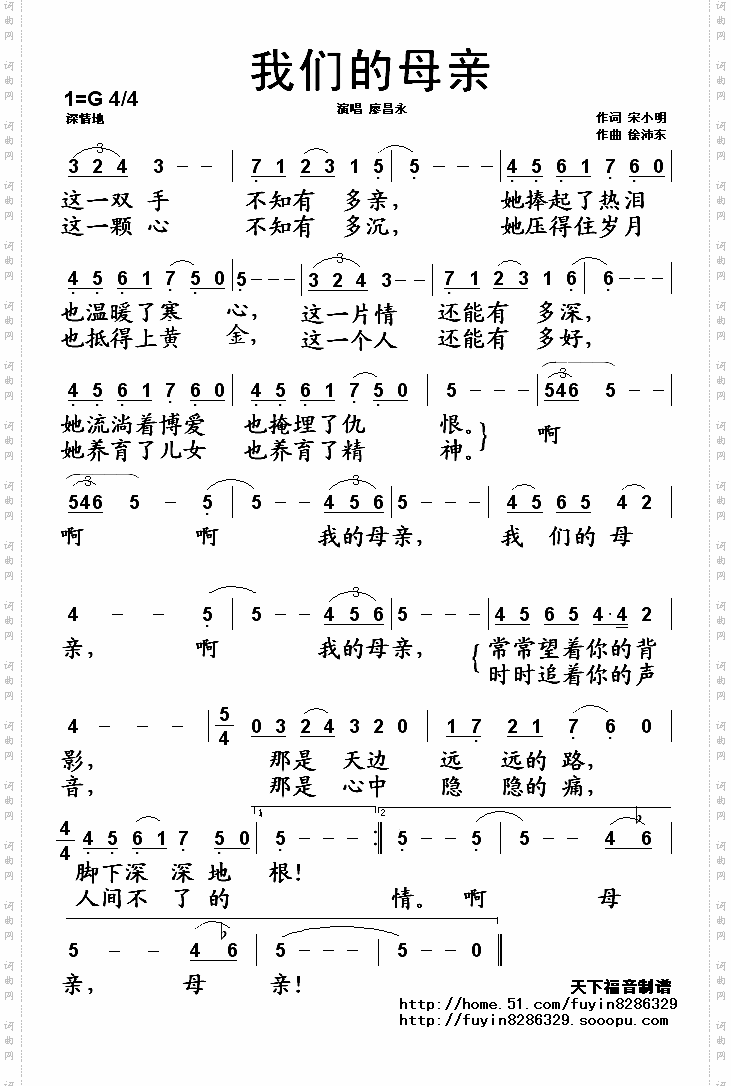 我们的母亲
1=G 4/4
演唱 廖昌永
深情地
作词 宋小明
作曲 徐沛东
3 2 4 3 - - | 7 1 2 3 1 5 | 5 - - - | 4 5 6 1 7 6 0 |
这一双手 不知有 多亲, 她捧起了热泪
这一颗心 不知有 多沉, 她压得住岁月
4 5 6 1 7 5 0 | 5 - - - | 3 2 4 3 - - | 7 1 2 3 1 6 | 6 - - - |
也温暖了寒 心, 这一片情 还能有 多深,
也抵得上黄 金, 这一个人 还能有 多好,
4 5 6 1 7 6 0 | 4 5 6 1 7 5 0 | 5 - - - | 546 5 - - |
她流淌着博爱 也掩埋了仇 恨。 啊
她养育了儿女 也养育了精 神。
546 5 - 5 | 5 - - 4 5 6 | 5 - - - | 4 5 6 5 4 2 |
啊 啊 我的母亲, 我 们的 母
4 - - 5 | 5 - - 4 5 6 | 5 - - - | 4 5 6 5 4·4 2 |
亲, 啊 我的母亲, 常常望着你的背
时时追着你的声
4 - - - | 5/4 0 3 2 4 3 2 0 | 1 7 2 1 7 6 0 |
影, 那是 天边 远 远的 路,
音, 那是 心中 隐 隐的 痛,
1 2
4/4 4 5 6 1 7 5 0 | 5 - - - :|| 5 - - 5 | 5 - - - | 4 ♭6 |
脚下深 深 地 根!
人间不 了 的 情。 啊 母
5 - - 4 ♭6 | 5 - - - | 5 - - 0 |
亲, 母 亲!
天下福音制谱
http://home.51.com/fuyin8286329
http://fuyin8286329.sooopu.com
词曲网